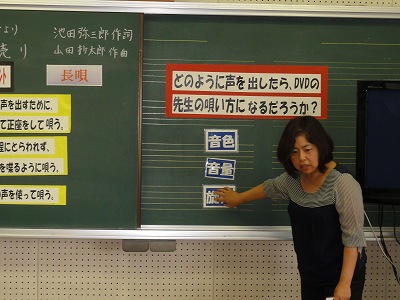 より
売り
池田弥三郎作詞
山田抄太郎作曲
長唄
声を出すために、
て正座をして唄う。
にとらわれず、
を喋るように唄う。
声を使って唄う。
どのように声を出したら、DVDの
先生の唄い方になるだろうか？
音色
音量
旋